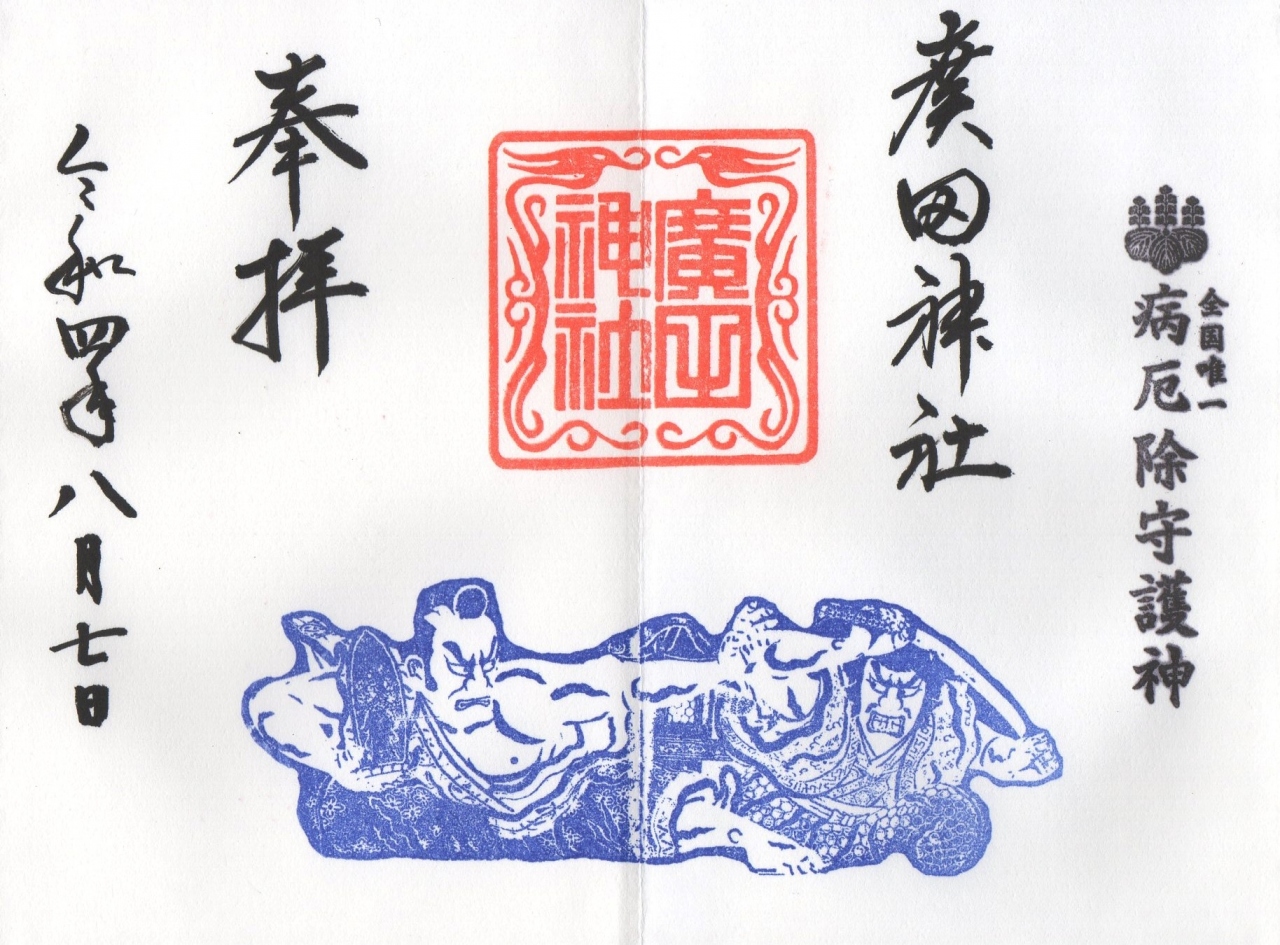 全国唯一
病厄除守護神
廣田神社
廣田神社
奉拝
令和四年八月七日